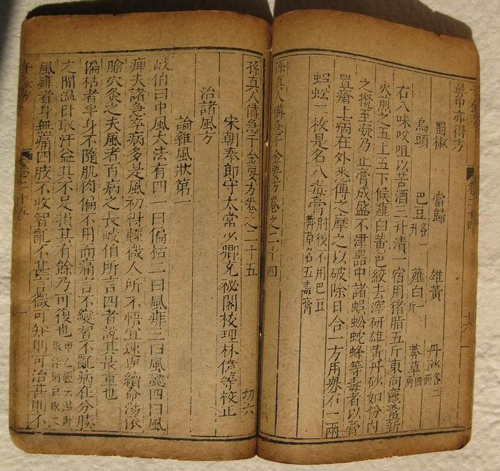 印亦得方
蜀椒 當歸 雄黃 丹砂各二
烏頭 巴豆各 薤白一 莽草
右八味㕮咀以苦酒三升漬一宿用猪脂五斤東向竈葦薪
火煎之五上五下候薤白黃色絞去滓研雄黃丹砂如粉內
之攪至凝乃止膏成盛不津器中諸蜈蚣蛇蜂等毒者以膏
置瘡上病在外悉傅之摩之以破除日合一方用礬石一兩
蜈蚣二枚是名八毒膏 肘後不用巴豆莽草名五毒膏
孫真人備急千金要方卷之二十四
孫真人備急千金要方卷之二十五
宋朝奉郎守太常少卿充祕閣校理林億等校正 切六
治諸風方
論雜風狀第一
岐伯曰中風大法有四一曰偏枯二曰風痱三曰風懿四曰風
痺夫諸急卒病多是風初得輕微人所不悟宜速與續命湯依
腧穴灸之夫風者百病之長岐伯所言四者說其最重也
偏枯者半身不隨肌肉偏不用而痛言不變智不亂病在分腠
之間溫臥取汗益其不足損其有餘乃可復也
風痱者身無痛四肢不收智亂不甚言微可知則可治甚則不